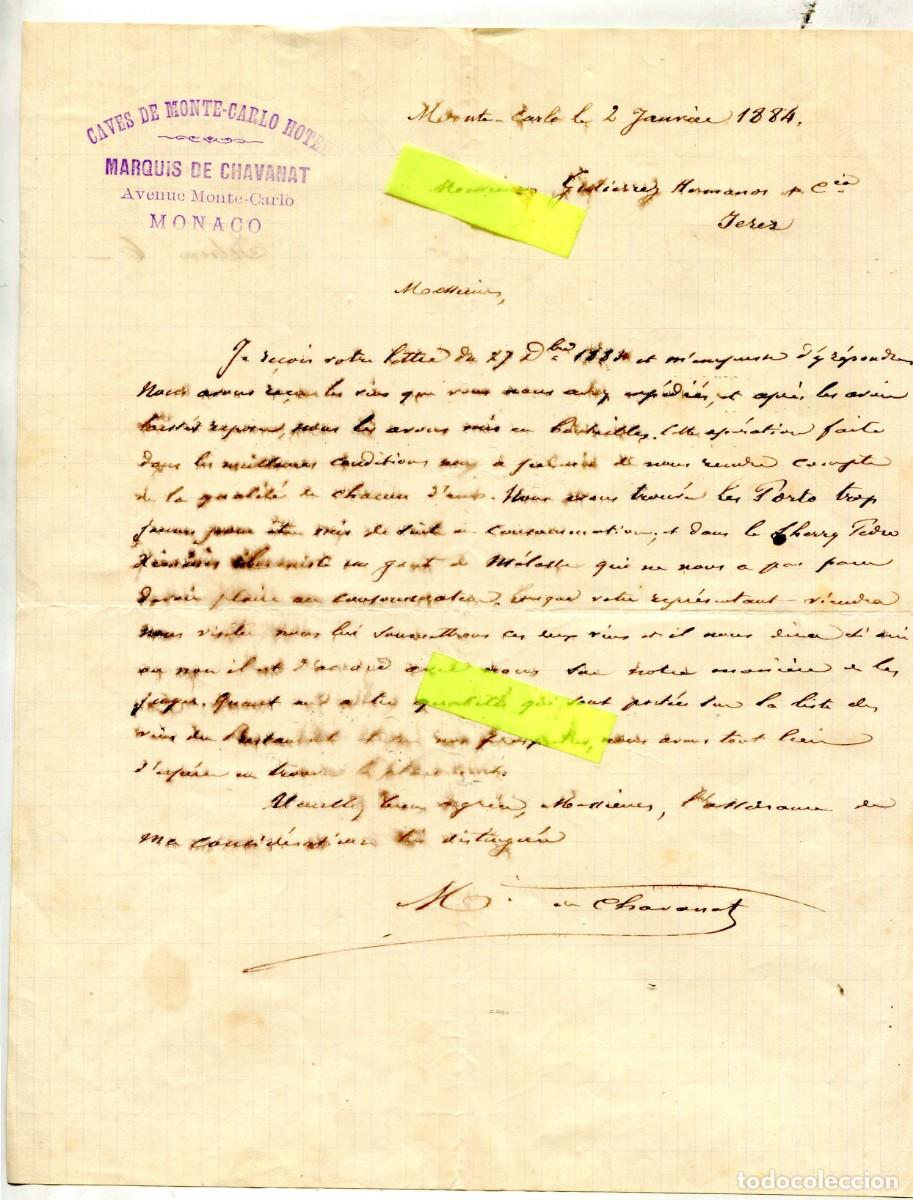 CAVES DE MONTE-CARLO HOTEL
MARQUIS DE CHAVANAT
Avenue Monte-Carlo
MONACO
Monte-Carlo le 2 Janvier 1884.
Messieurs Gutierrez Hermanos & Cie
Jerez
Messieurs,
Je reçois votre lettre du 27 Dbre 1883 et m'empresse d'y répondre
Nous avons reçu les vins que vous nous avez expédiés, et après les avoir
laissés reposer, nous les avons mis en bouteilles. Cette opération faite
dans les meilleures conditions nous a permis de nous rendre compte
de la qualité de chacun d'eux. Nous avons trouvé les Porto trop
jeunes pour être mis de suite en consommation, et dans le Cherry Pédro
Ximénès il existe un goût de Mélasse qui ne nous a pas paru
devoir plaire au consommateur. Lorsque votre représentant viendra
nous visiter nous lui soumettrons ces deux vins et il nous dira si oui
ou non il est d'accord avec nous sur notre manière de les
juger. Quant aux autres qualités qui sont portées sur la liste des
vins du Restaurant et sur nos prospectus, nous avons tout lieu
d'espérer en trouver le placement.
Veuillez bien agréer, Messieurs, l'assurance de
ma considération très distinguée
Mis de Chavanat
todocoleccion